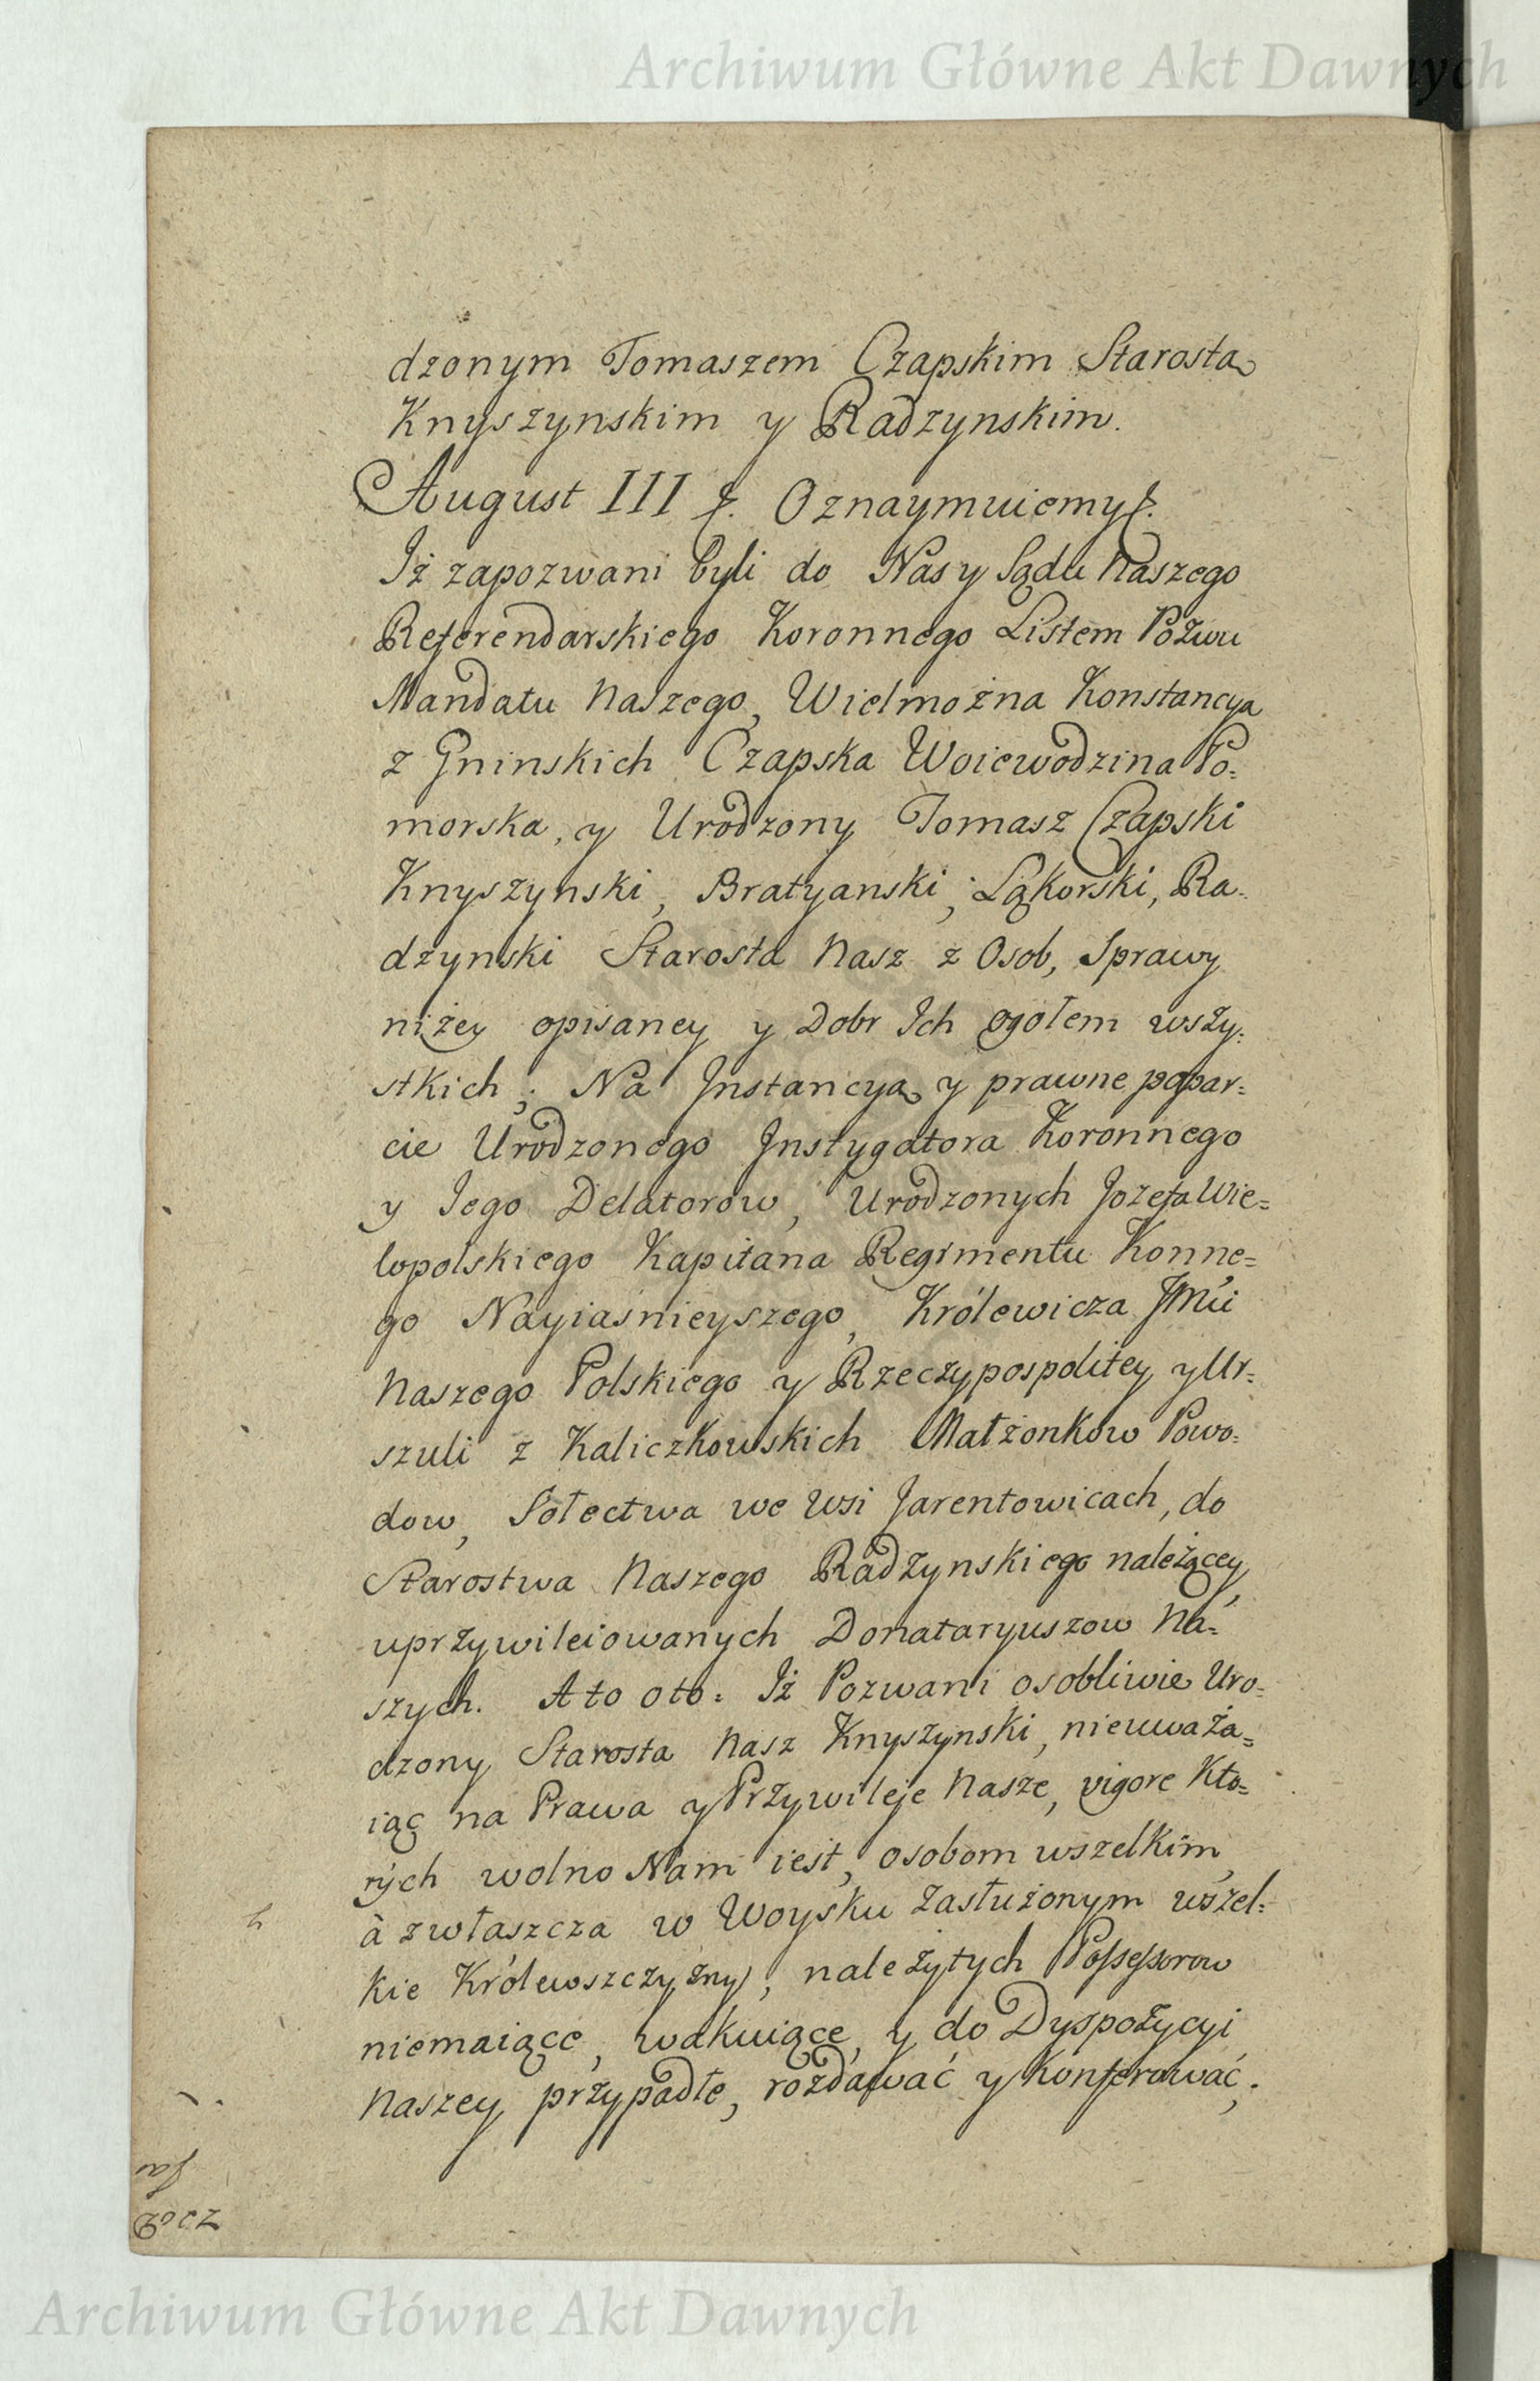 Archiwum Główne Akt Dawnych
dzonym Tomaszem Czapskim Starostą
Knyszynskim y Radzynskim.
August III &. Oznaymuiemy &.
Iż zapozwani byli do Nas y Sądu Naszego
Referendarskiego Koronnego Listem Pozwu
Mandatu Naszego, Wielmożna Konstancya
z Gninskich Czapska Woiewodzina Po=
morska, y Urodzony Tomasz Czapski
Knyszynski, Bratyanski, Ląkorski, Ra=
dzynski Starosta Nasz z Osob, Sprawy
niżey opisaney y Dobr Ich ogołem wszy=
stkich; Na Instancyą y prawne popar=
cie Urodzonego Instygatora Koronnego
y Iego Delatorow, Urodzonych Jozefa Wie=
lopolskiego Kapitana Regimentu Konne=
go Nayiaśnieyszego, Królewicza JMci
Naszego Polskiego y Rzeczypospolitey y Ur=
szuli z Kaliczkowskich Małżonkow Powo=
dow, Sołectwa we Wsi Jarentowicach, do
Starostwa Naszego Radzynskiego należącey,
uprzywileiowanych Donataryuszow Na=
szych. A to oto: Iż Pozwani osobliwie Uro=
dzony Starosta Nasz Knyszynski, nieuważa=
iąc na Prawa y Przywileje Nasze, vigore Kto=
rych wolno Nam iest, osobom wszelkim,
à zwłaszcza w Woysku zasłużonym wszel=
kie Królewszczyzny, należytych Possessorow
niemaiące, wakuiące, y do Dyspozycyi
Naszey przypadłe, rozdawać y konferować;
Archiwum Główne Akt Dawnych